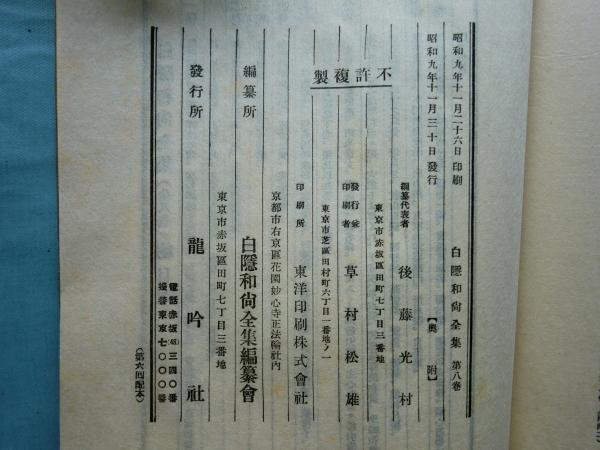 昭和九年十一月二十六日印刷
昭和九年十一月三十日發行
白隱和尙全集 第八卷
【奧附】
不許複製
編纂代表者 後藤光村
東京市赤坂區田町七丁目三番地
發行兼印刷者 草村松雄
東京市芝區田村町六丁目一番地ノ一
印刷所 東洋印刷株式會社
京都市右京區花園妙心寺正法輪社內
編纂所 白隱和尙全集編纂會
東京市赤坂區田町七丁目三番地
發行所 龍吟社
電話赤坂(48)三四〇番
振替東京七〇〇〇番
(第六回配本)